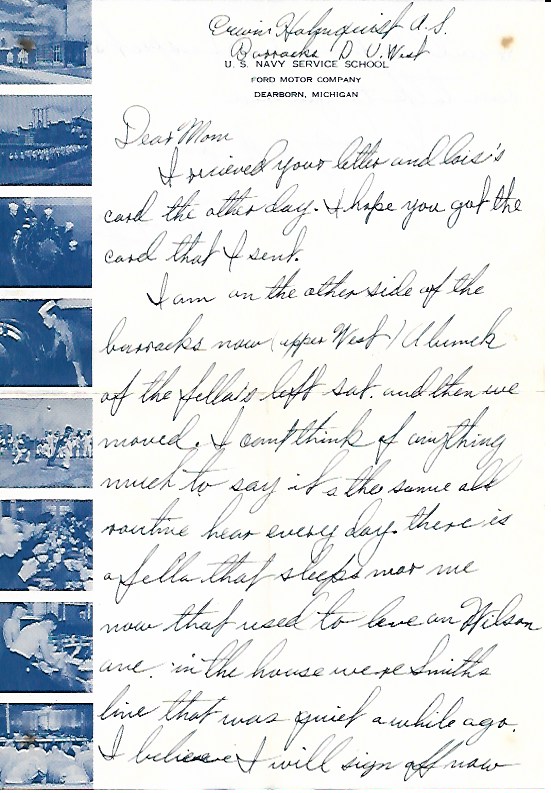 Erwin Holmquist A.S.
Barracks D U. West
U. S. NAVY SERVICE SCHOOL
FORD MOTOR COMPANY
DEARBORN, MICHIGAN
Dear Mom
I recieved your letter and Lois's
card the other day. I hope you got the
card that I sent.
I am on the other side of the
barracks now (upper West) A bunch
of the fella's left sat. and then we
moved. I cant think of anything
much to say it's the same old
routine hear every day. there is
a fella that sleeps near me
now that used to live on Wilson
ave. in the house were Smiths
live that was quiet a while ago.
I believe I will sign off now